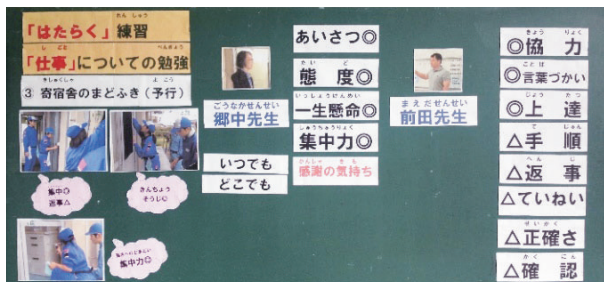 「はたらく」練習
「仕事」についての勉強
3 寄宿舎のまどふき(予行)
集中◎
返事△
きんちょう
そうじ◎
集中力◎
郷中先生
いつでも
どこでも
あいさつ◎
態度◎
一生懸命◎
集中力◎
感謝の気持ち
前田先生
◎協力
◎言葉づかい
◎上達
△手順
△返事
△ていねい
△正確さ
△確認